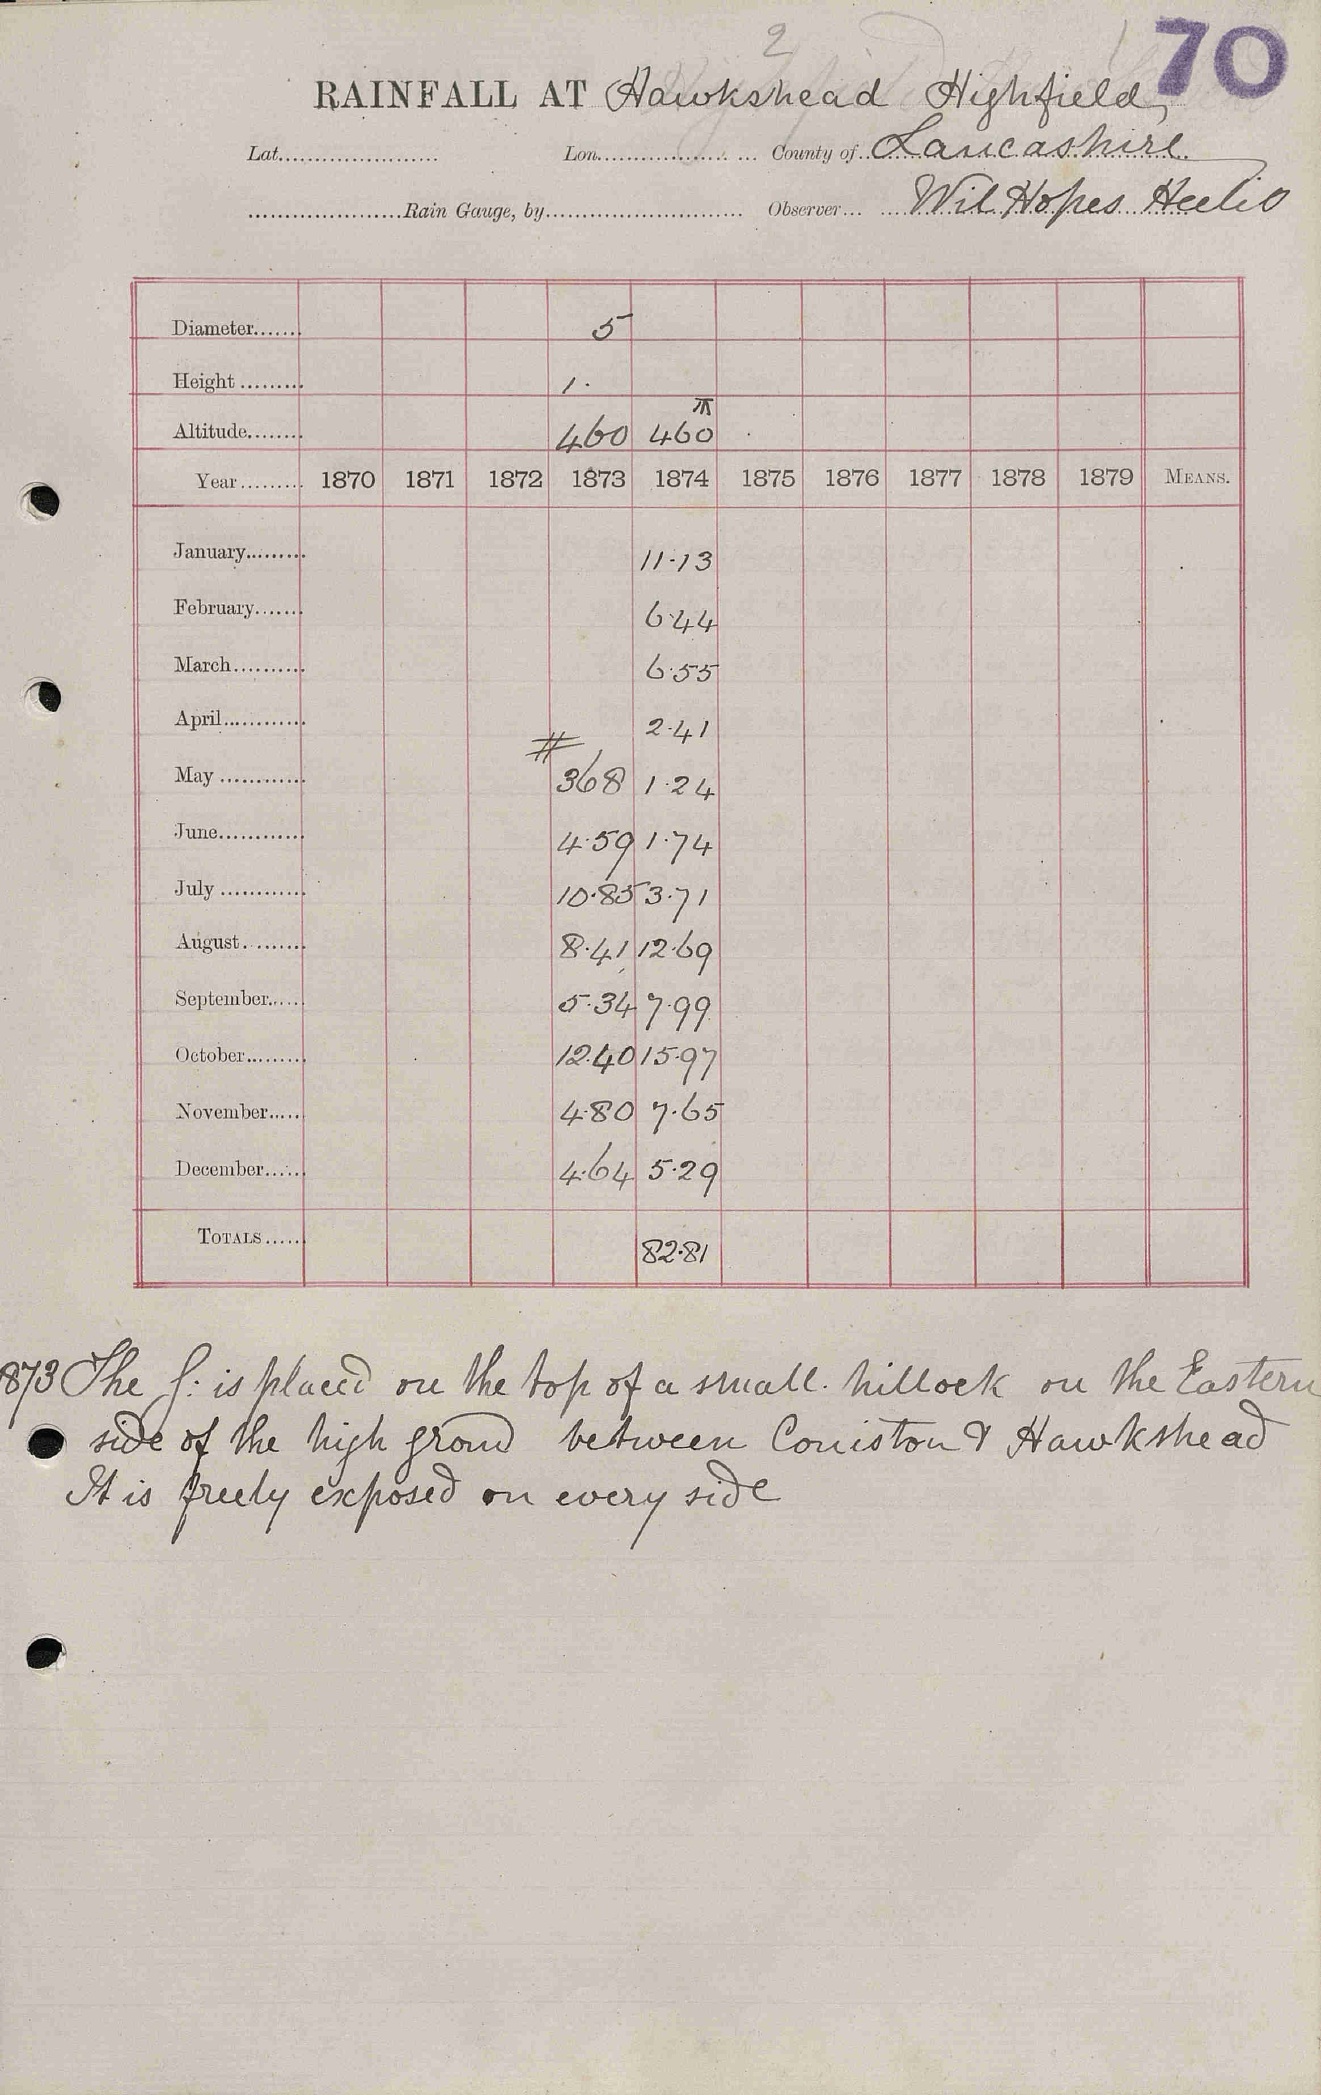 2
70
RAINFALL AT Hawkshead Highfield,
Lat....................... Lon.................... ... County of Lancashire
.....................Rain Gauge, by........................... Observer... Wil Hopes
Diameter....... 5
Height ......... 1.
Altitude........ 460 460
Year......... 1870 1871 1872 1873 1874 1875 1876 1877 1878 1879 MEANS.
January......... 11.13
February....... 6.44
March.......... 6.55
April............ 2.41
#
May ............ 368 1.24
June............ 4.59 1.74
July ............ 10.85 3.71
August......... 8.41 12.69
September...... 5.34 7.99
October......... 12.40 15.97
November..... 4.80 7.65
December...... 4.64 5.29
TOTALS...... 82.81
1873 The G: is placed on the top of a small hillock on the Eastern
side of the high ground between Coniston & Hawkshead
It is freely exposed on every side